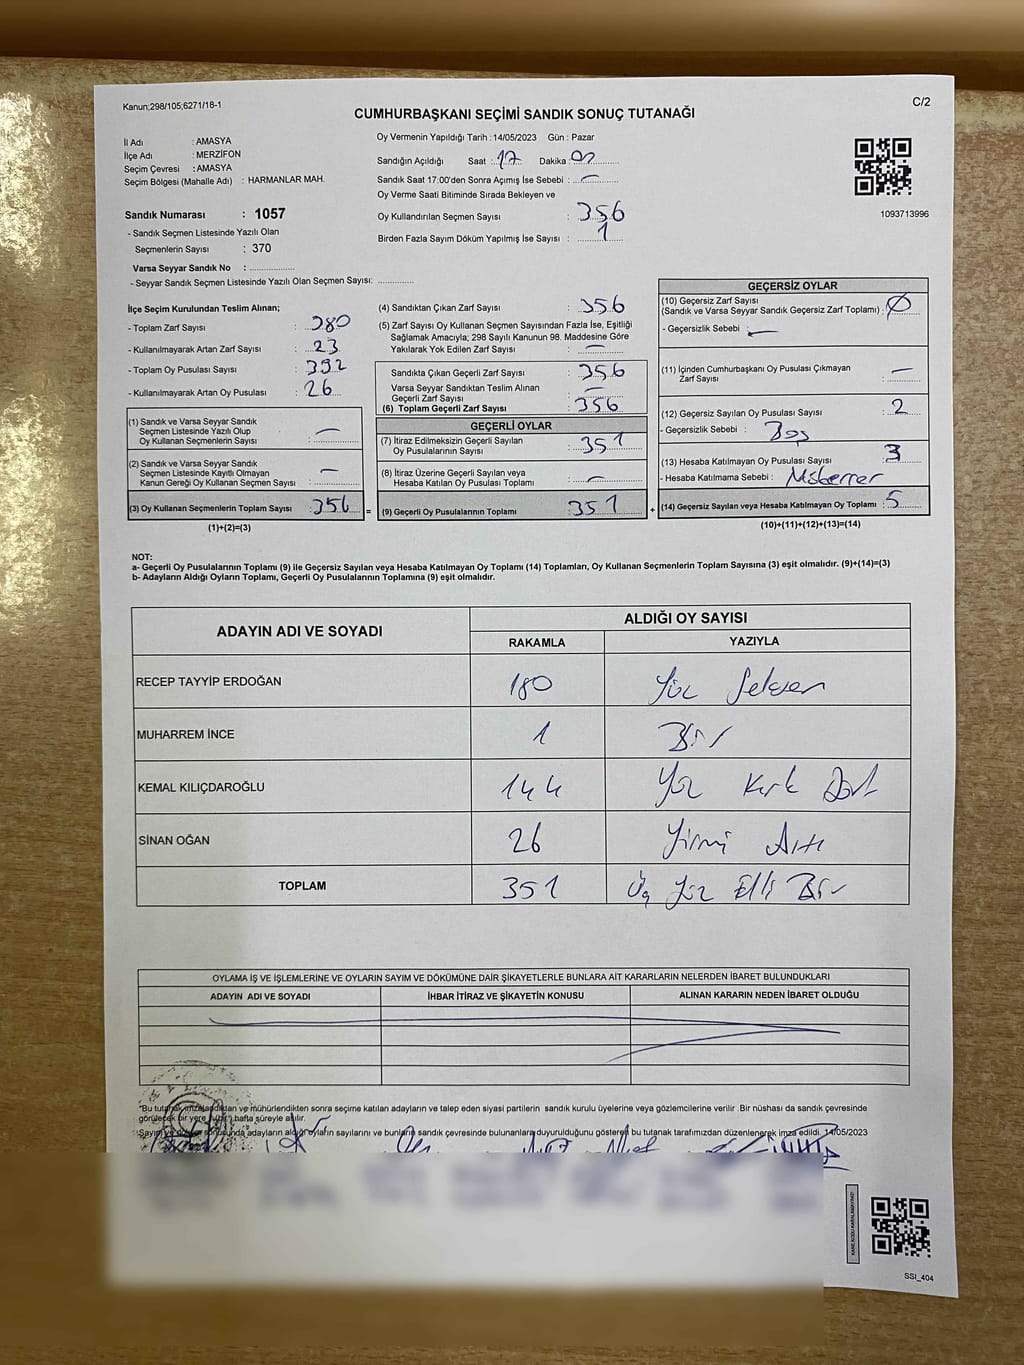 Kanun;298/105;6271/18-1
C/2
CUMHURBAŞKANI SEÇİMİ SANDIK SONUÇ TUTANAĞI
İl Adı : AMASYA
İlçe Adı : MERZİFON
Seçim Çevresi : AMASYA
Seçim Bölgesi (Mahalle Adı) : HARMANLAR MAH.
Oy Vermenin Yapıldığı Tarih : 14/05/2023 Gün : Pazar
Sandığın Açıldığı Saat : 17 Dakika
Sandık Saat 17:00'den Sonra Açımış İse Sebebi : —
Oy Verme Saati Bitiminde Sırada Bekleyen ve
Oy Kullandırılan Seçmen Sayısı : 356
Birden Fazla Sayım Döküm Yapılmış İse Sayısı : 1
1093713996
Sandık Numarası : 1057
- Sandık Seçmen Listesinde Yazılı Olan
Seçmenlerin Sayısı : 370
Varsa Seyyar Sandık No : ................
- Seyyar Sandık Seçmen Listesinde Yazılı Olan Seçmen Sayısı: .............
İlçe Seçim Kurulundan Teslim Alınan;
- Toplam Zarf Sayısı : 380
- Kullanılmayarak Artan Zarf Sayısı : 23
- Toplam Oy Pusulası Sayısı : 392
- Kullanılmayarak Artan Oy Pusulası : 26
(1) Sandık ve Varsa Seyyar Sandık
Seçmen Listesinde Yazılı Olup
Oy Kullanan Seçmenlerin Sayısı : —
(2) Sandık ve Varsa Seyyar Sandık
Seçmen Listesinde Kayıtlı Olmayan
Kanun Gereği Oy Kullanan Seçmen Sayısı : —
(3) Oy Kullanan Seçmenlerin Toplam Sayısı : 356 =
(1)+(2)=(3)
(4) Sandıktan Çıkan Zarf Sayısı : 356
(5) Zarf Sayısı Oy Kullanan Seçmen Sayısından Fazla İse, Eşitliği
Sağlamak Amacıyla; 298 Sayılı Kanunun 98. Maddesine Göre
Yakılarak Yok Edilen Zarf Sayısı : —
Sandıkta Çıkan Geçerli Zarf Sayısı : 356
Varsa Seyyar Sandıktan Teslim Alınan
Geçerli Zarf Sayısı : —
(6) Toplam Geçerli Zarf Sayısı : 356
GEÇERLİ OYLAR
(7) İtiraz Edilmeksizin Geçerli Sayılan
Oy Pusulalarının Sayısı : 351
(8) İtiraz Üzerine Geçerli Sayılan veya
Hesaba Katılan Oy Pusulası Toplamı : —
(9) Geçerli Oy Pusulalarının Toplamı : 351 +
GEÇERSİZ OYLAR
(10) Geçersiz Zarf Sayısı
(Sandık ve Varsa Seyyar Sandık Geçersiz Zarf Toplamı) : Ø
- Geçersizlik Sebebi : —
(11) İçinden Cumhurbaşkanı Oy Pusulası Çıkmayan
Zarf Sayısı : —
(12) Geçersiz Sayılan Oy Pusulası Sayısı : 2
- Geçersizlik Sebebi : Boş
(13) Hesaba Katılmayan Oy Pusulası Sayısı : 3
- Hesaba Katılmama Sebebi : Mükerrer
(14) Geçersiz Sayılan veya Hesaba Katılmayan Oy Toplamı : 5
(10)+(11)+(12)+(13)=(14)
NOT:
a- Geçerli Oy Pusulalarının Toplamı (9) ile Geçersiz Sayılan veya Hesaba Katılmayan Oy Toplamı (14) Toplamları, Oy Kullanan Seçmenlerin Toplam Sayısına (3) eşit olmalıdır. (9)+(14)=(3)
b- Adayların Aldığı Oyların Toplamı, Geçerli Oy Pusulalarının Toplamına (9) eşit olmalıdır.
ADAYIN ADI VE SOYADI
ALDIĞI OY SAYISI
RAKAMLA YAZIYLA
RECEP TAYYİP ERDOĞAN 180 Yüz Seksen
MUHARREM İNCE 1 Bir
KEMAL KILIÇDAROĞLU 144 Yüz Kırk Dört
SİNAN OĞAN 26 Yirmi Altı
TOPLAM 351 Üç Yüz Elli Bir
OYLAMA İŞ VE İŞLEMLERİNE VE OYLARIN SAYIM VE DÖKÜMÜNE DAİR ŞİKAYETLERLE BUNLARA AİT KARARLARIN NELERDEN İBARET BULUNDUKLARI
ADAYIN ADI VE SOYADI İHBAR İTİRAZ VE ŞİKAYETİN KONUSU ALINAN KARARIN NEDEN İBARET OLDUĞU
*Bu tutanak imzalandıktan ve mühürlendikten sonra seçime katılan adayların ve talep eden siyasi partilerin sandık kurulu üyelerine veya gözlemcilerine verilir .Bir nüshası da sandık çevresinde
görülecek bir yere (1 bir) hafta süreyle asılır.
Sayım ve döküm sonucunda adayların aldığı oyların sayılarını ve bunların sandık çevresinde bulunanlara duyurulduğunu gösteren bu tutanak tarafımızdan düzenlenerek imza edildi. 14/05/2023
SSI_404